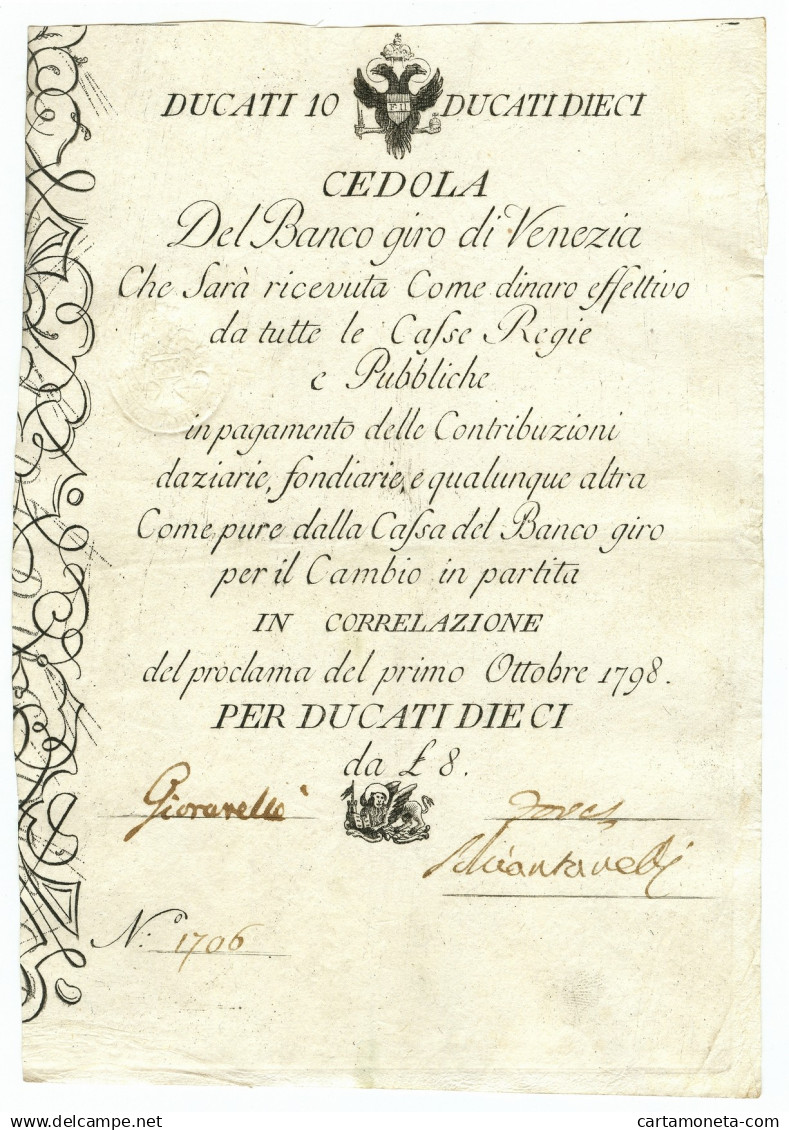 DUCATI 10 DUCATI DIECI
F II
CEDOLA
Del Banco giro di Venezia
Che Sarà ricevuta Come dinaro effettivo
da tutte le Caſse Regie
e Pubbliche
in pagamento delle Contribuzioni
daziarie, fondiarie, e qualunque altra
Come pure dalla Caſsa del Banco giro
per il Cambio in partita
IN CORRELAZIONE
del proclama del primo Ottobre 1798.
PER DUCATI DIECI
da £ 8.
N.º 1706
cartamoneta-com.com